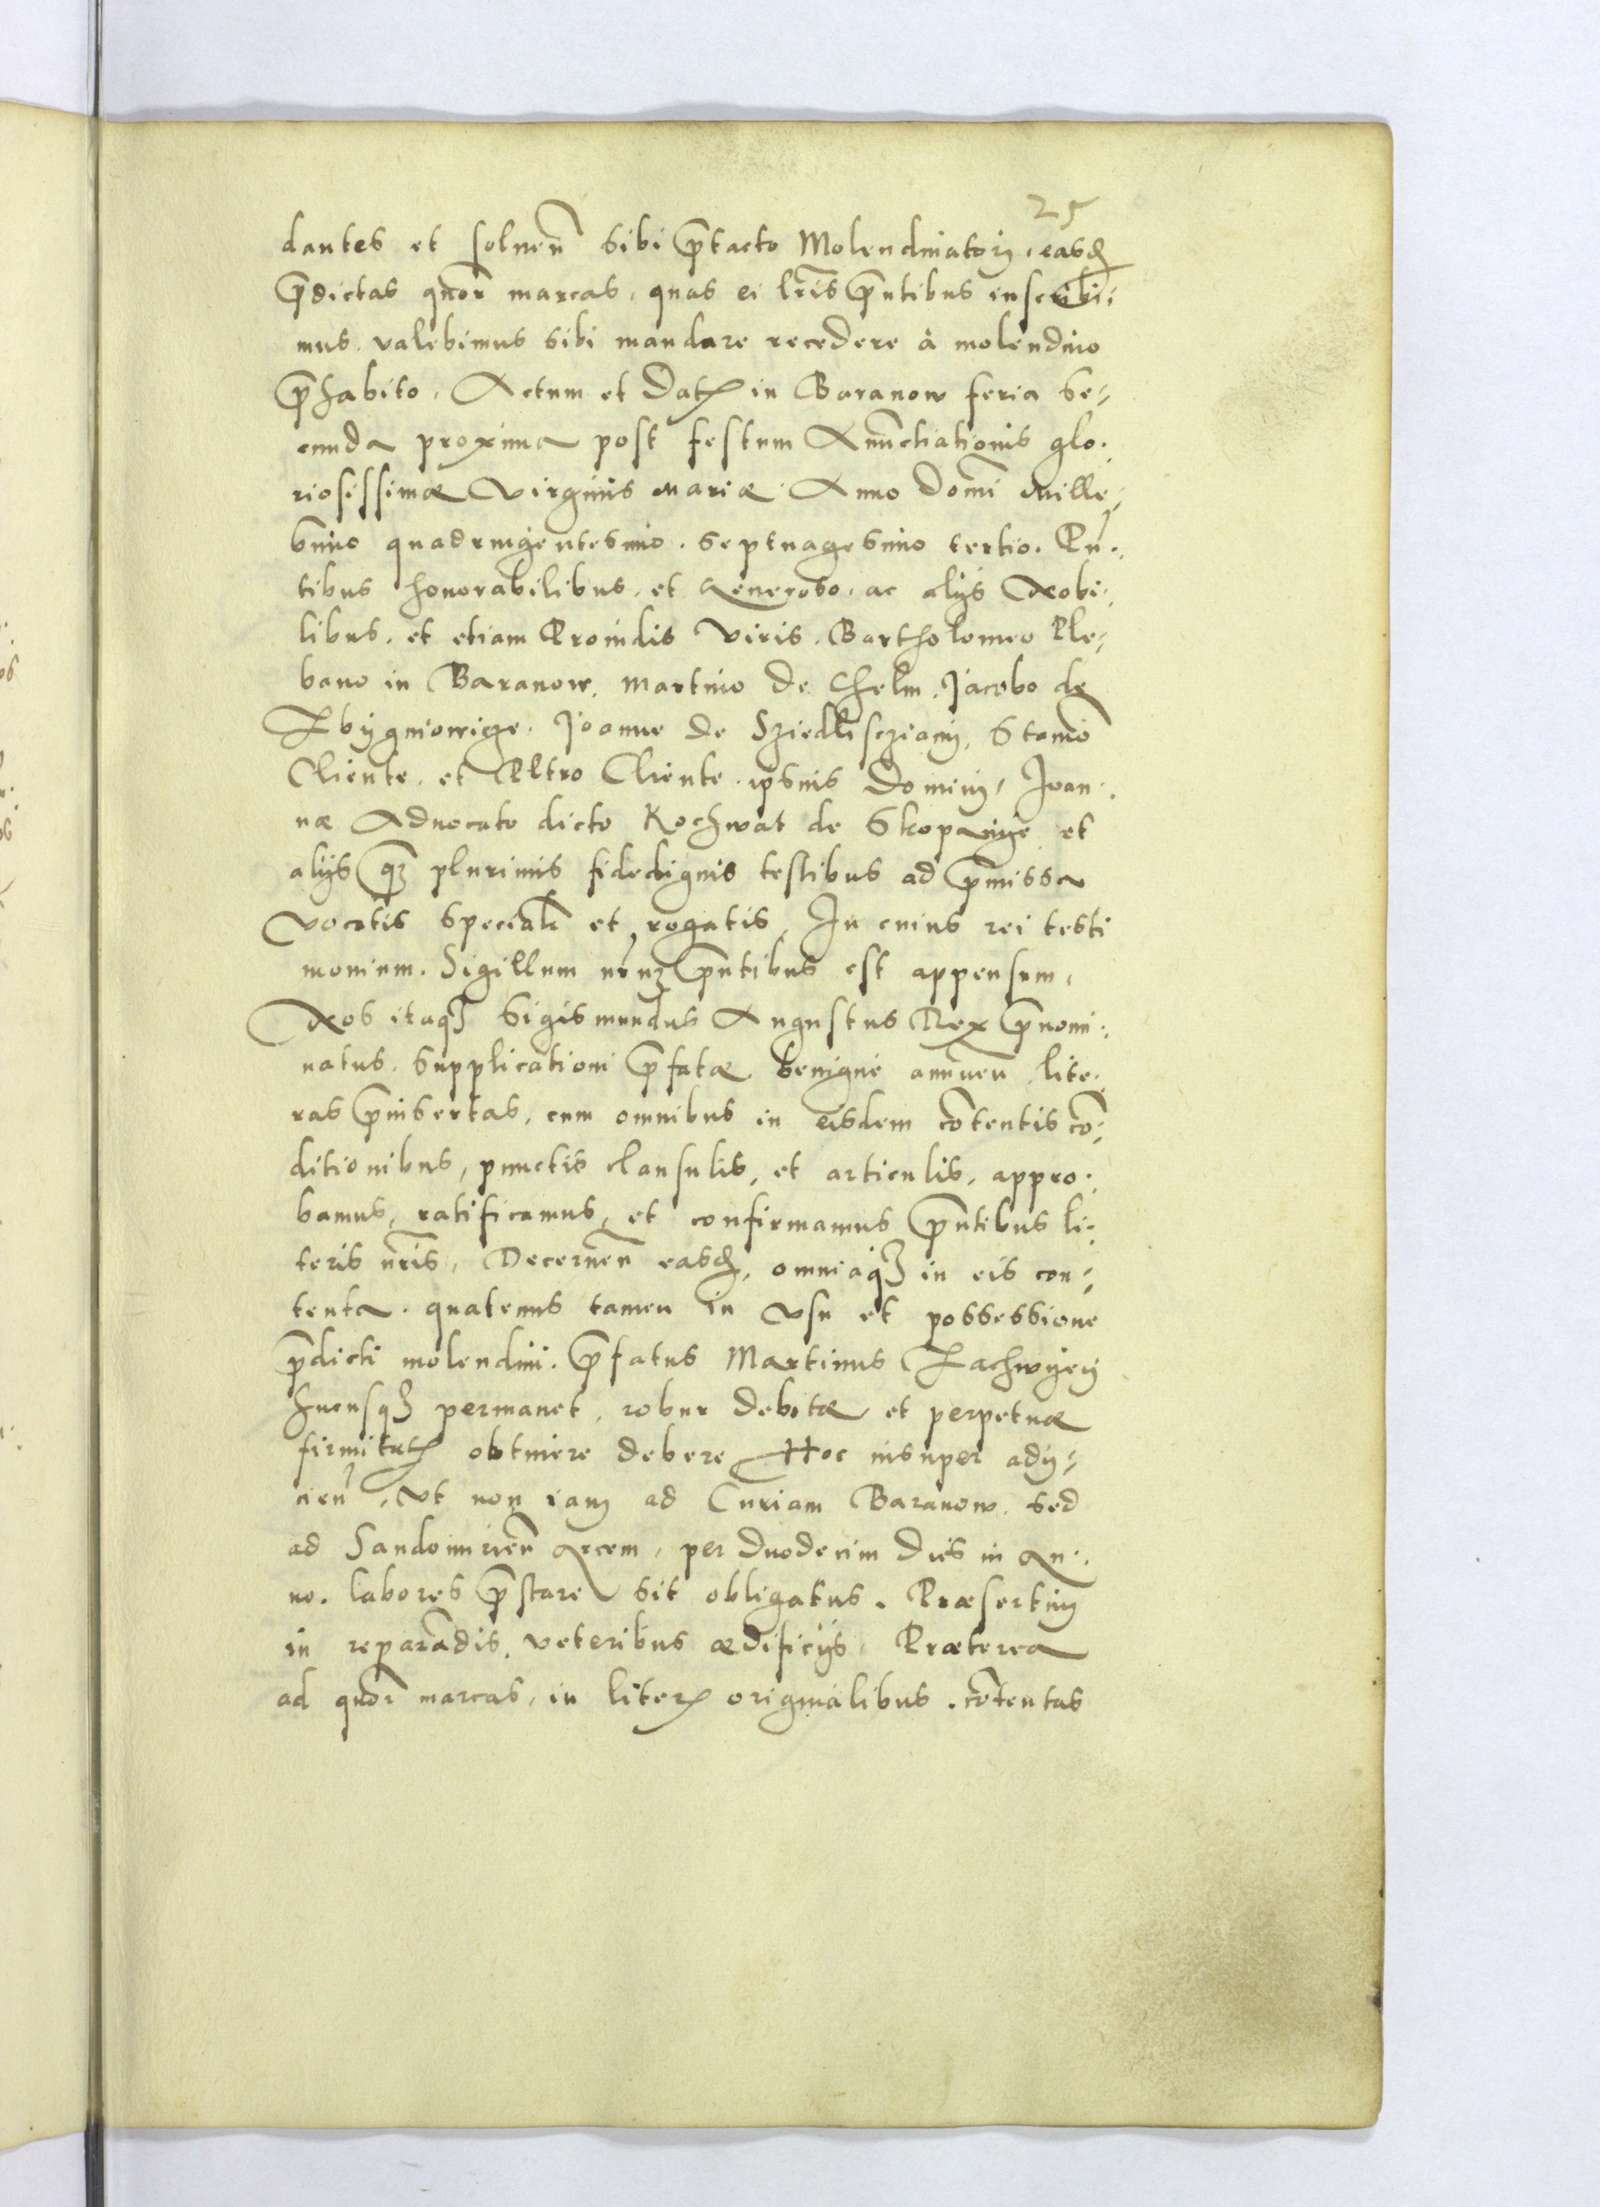 25
dantes et soluen̄ sibi p̄tacto Molendinatorj, easdꝫ
p̄dictas quor̄ marcas, quas ei lr̄is p̄ntibus inscribi-
mus. valebimus sibi mandare recedere à molendino
p̄habito. Actum et Datꝫ in Baranow feria se-
cunda proxima post festum Anu̅ctiationis glo-
riosissimæ Virginis Mariæ. Anno Domī Mille-
simo quadringentesimo. septuagesimo tertio. Pn̄-
tibus honorabilibus, et Generoso, ac alijs Nobi-
libus, et etiam Prouidis Viris, Bartholomeo Ple-
bano in Baranow, Martino de Chelm, Jacobo de
Joanne de Stamō
Cliente, et Petro Cliente, ipsius Dominj, Joan-
næ Aduocato dicto Kochwat de et
alijs qꝫ plurimis fidedignis testibus ad p̄missa
vocatis specialr̄ et rogatis, In cuius rei testi
monium. Sigillum nr̄uꝫ p̄ntibus est appensum,
Nos itaqꝫ Sigismundus Augustus Rex p̄nomi-
natus. Supplicationi p̄fatæ benigne annuen̄, lite-
ras p̄insertas, cum omnibus in eisdem cōtentis cō-
ditionibus, punctis clausulis, et articulis, appro-
bamus, ratificamus, et confirmamus p̄ntibus li-
teris nr̄is, Decernen̄ easdꝫ, omniaqꝫ in eis con-
tenta. quatenus tamen in vsu et possessione
p̄dicti molendini. p̄fatus Martinus Lachwyey
hucusqꝫ permanet, robur debitæ et perpetuæ
firmitatꝫ obtinere debere Hoc insuper adij-
cien̄, Vt non iam ad Curiam Baranow, sed
ad Sandomirien̄ Arcem, per duodecim dies in An-
no. labores p̄stare sit obligatus. Præsertim
in reparādis, veteribus ædificijs, Præterea
ad quor̄ marcas, in literꝫ originalibus. cōtentas